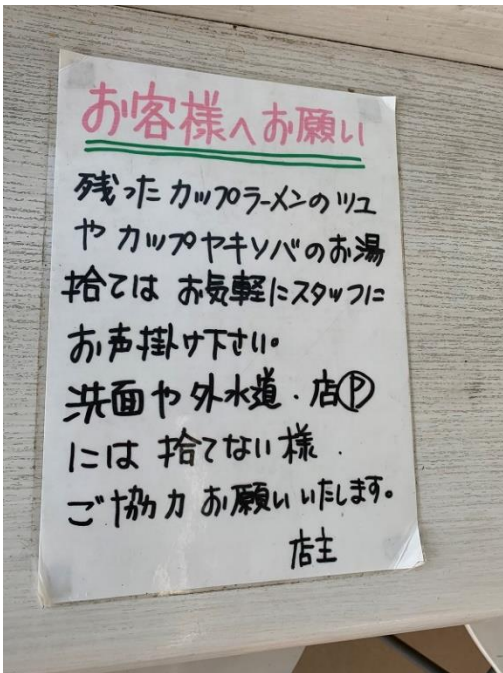 お客様へお願い
残ったカップラーメンのツユ
やカップヤキソバのお湯
捨ては お気軽にスタッフに
お声掛け下さい。
洗面や外水道・店Ⓟ
には捨てない様
ご協力お願いいたします。
店主